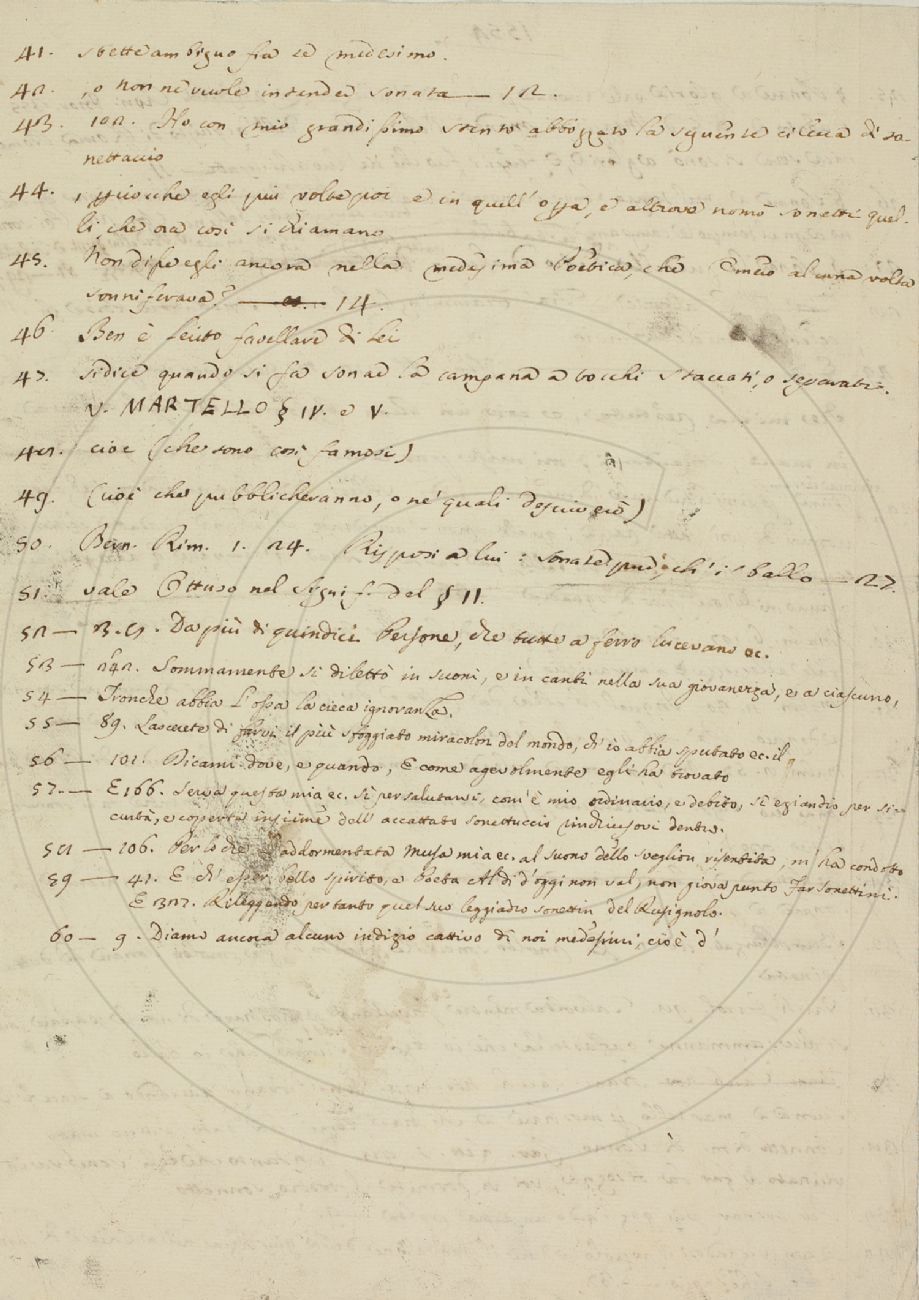 41. stette ambiguo fra sè medesimo.
42. , o non ne vuole intender sonata — 12.
43. 102. Ho con mio grandissimo stento abbozzato la seguente cileca di so-
nettaccio
44. , giocche egli più volte poi e in quell' , e altrove nomò sonetti quel-
li, che ora così si chiamano
45. Non disse egli ancora nella medesima Poetica, che Omero alcuna volta
sonniferava? — 14.
46. Ben è leuto favellare di lei
47. Si dice quando si fa sonar la campana a tocchi staccati, o separati.
V. MARTELLO § IV. e V.
48. cioè (che sono così famosi)
49. (cioè che pubblicheranno, o ne' quali descriverò)
50. Bern. Rim. 1. 24. Risposi a lui: sonate pur, ch' i' ballo — 27.
51. vale Ottuso nel Signif. del § II.
52 — 3.9. Da più di quindici Persone, che tutte a ferro lucevano ec.
53 — 242. Sommamente si dilettò in suoni, e in canti nella sua giovanezza, e a ciascuno,
54 — Tronche abbia l'ossa la cieca ignoranza.
55 — 89. Lascerete di farvi il più sfoggiato miracolon del mondo, ch' io abbia sputato ec. il
56 — 101. Dicami dove, e quando, e come agevolmente egli ha trovato
57. — E 166. Serva questa mia ec. sì per salutarvi, com' è mio ordinario, e debito, sì eziandio per si-
curtà, e coperta insieme dell' accattato sonettuccio rinchiusovi dentro.
58 — 106. Perlochè l'addormentata Musa mia ec. al suono dello sveglion risentita, m' ha condotto
59 — 41. E ch' esser bello spirito, e Poeta Al dì d'oggi non val, non giova punto Far Sonettini.
E 322. Rileggendo per tanto quel suo leggiadro sonettin del Rusignolo.
60 — 9. Diamo ancora alcuno indizio cattivo di noi medesimi, cioè d'